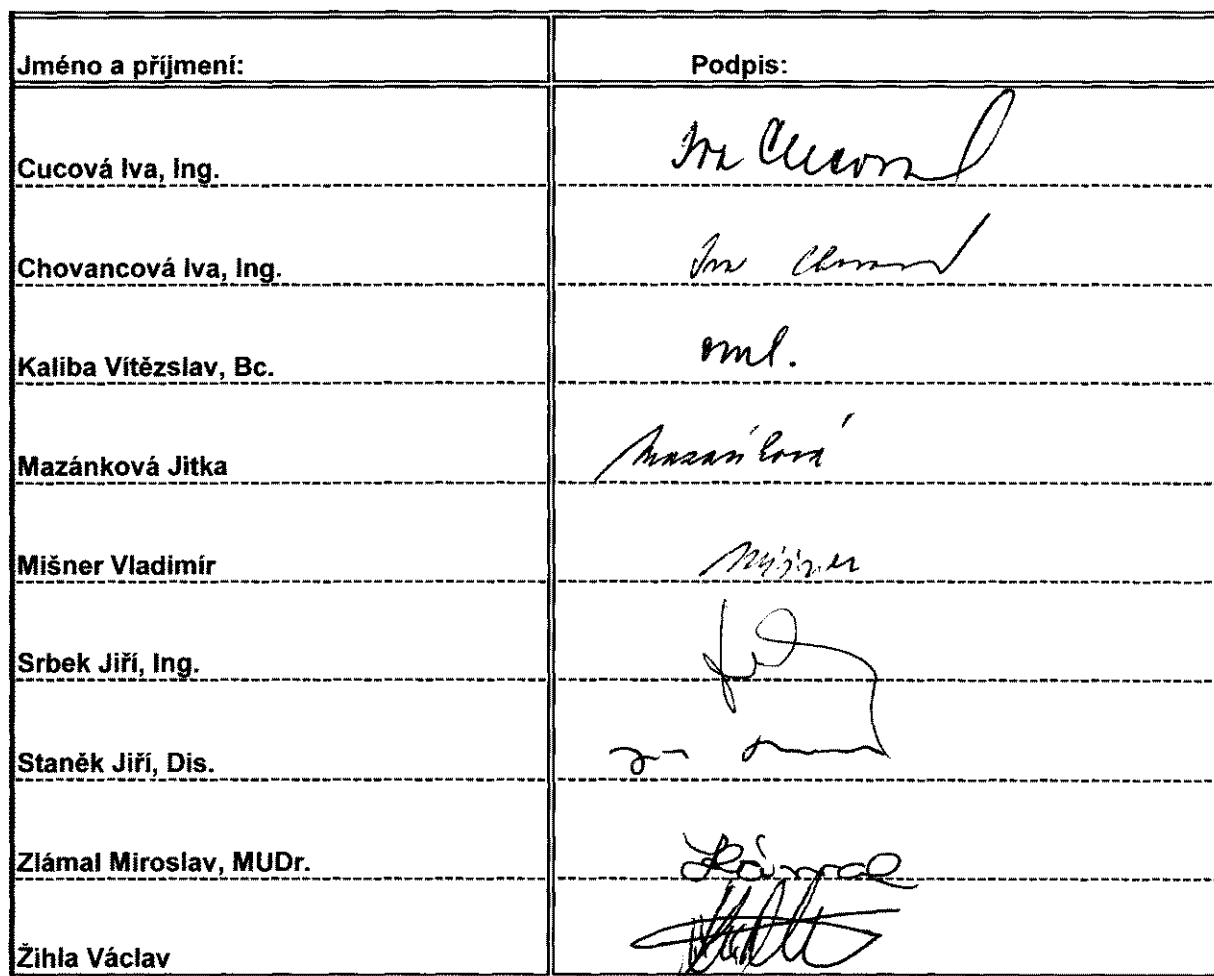 Jméno a příjmení: Podpis:
Cucová Iva, Ing. Iva Cucová
Chovancová Iva, Ing. Iva
Kaliba Vítězslav, Bc. oml.
Mazánková Jitka Mazánková
Mišner Vladimír Mišner
Srbek Jiří, Ing.
Staněk Jiří, Dis.
Zlámal Miroslav, MUDr. Zlámal
Žihla Václav